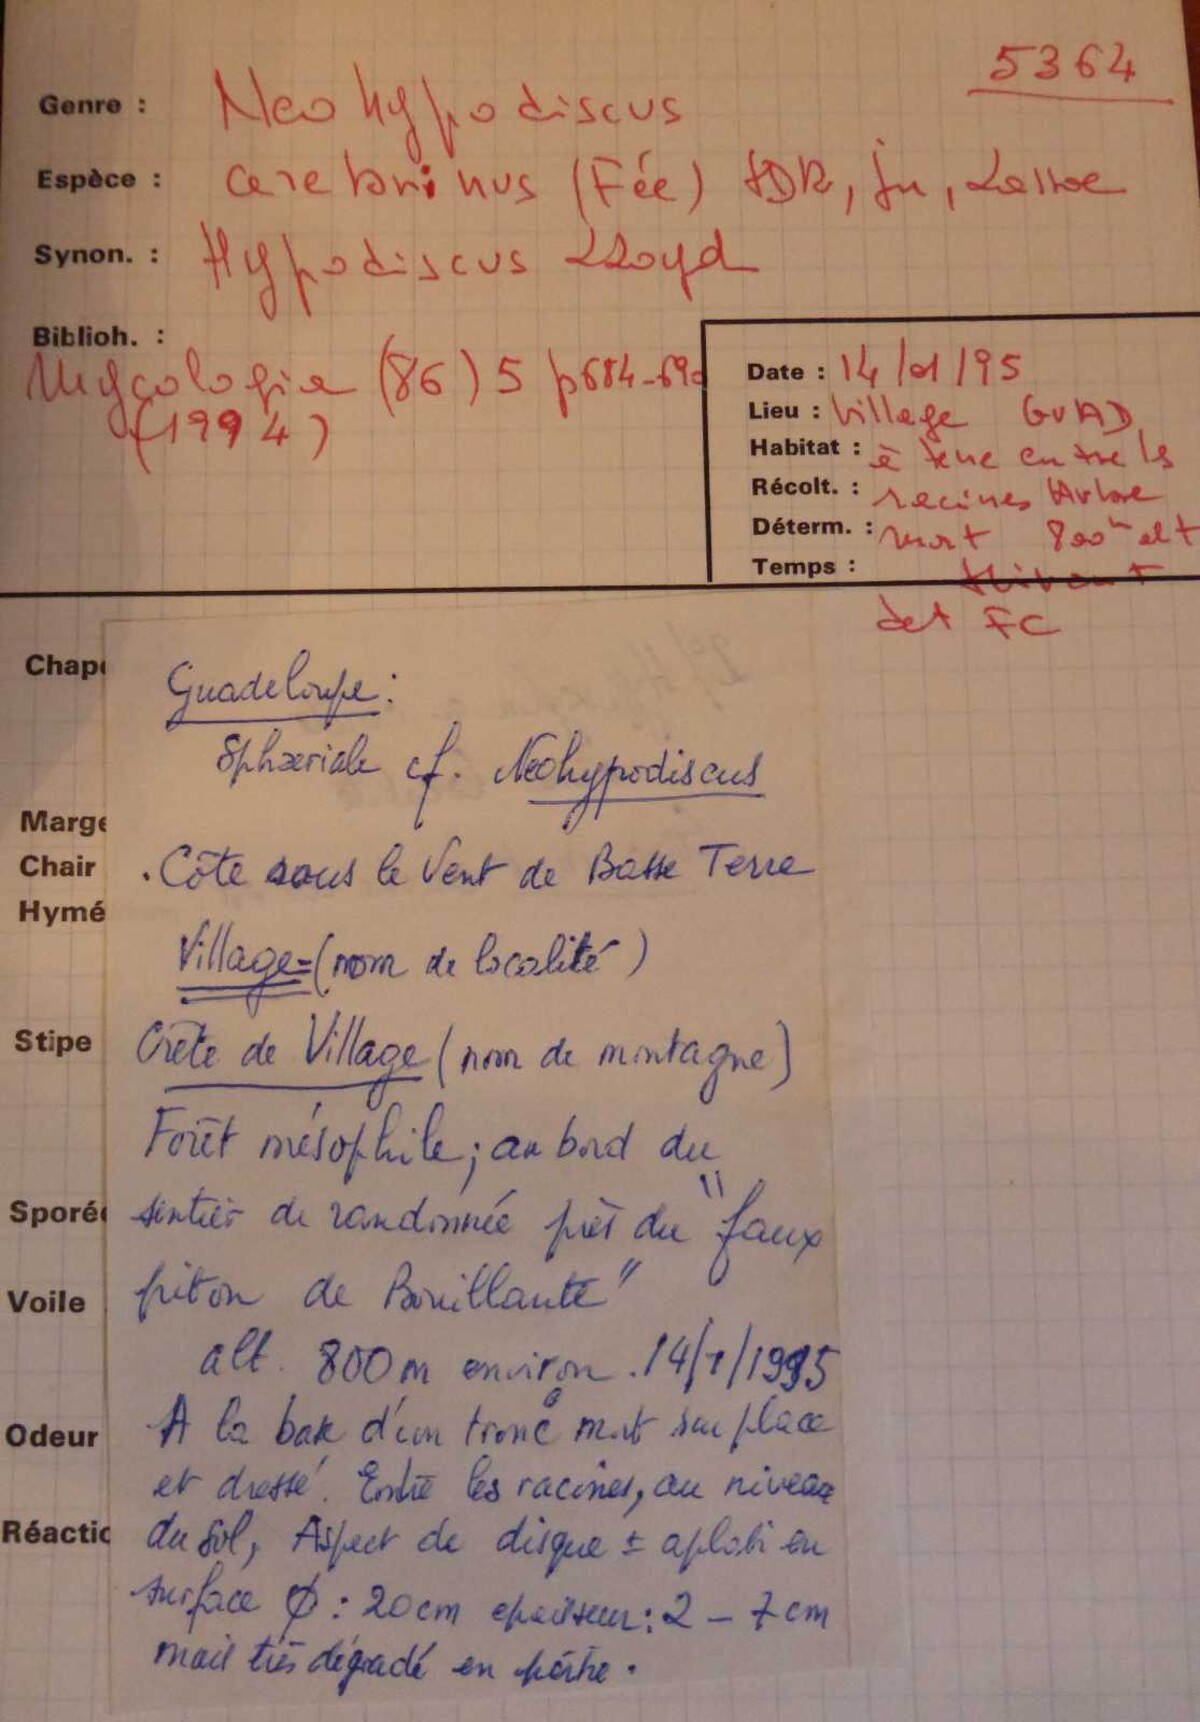 5364
Genre : Neohypodiscus
Espèce : cerebrinus (Fée) JDR, Ju, Læssoe
Synon. : Hypodiscus Lloyd
Biblioh. :
Mycologia (86) 5 p684-690
(1994)
Date : 14/01/95
Lieu : Village GUAD
Habitat : à terre entre ls
Récolt. : racines Arbre
Déterm. : mort 800m alt
Temps :
det FC
Chap
Guadeloupe :
Sphæriale cf. Neohypodiscus
Marge
Chair
. Côte sous le Vent de Basse Terre
Hymé
Village = (nom de localité)
Stipe
Crête de Village (nom de montagne)
Forêt mésophile ; au bord du
Sporée
sentier de randonnée près du "faux
Voile
piton de Bouillante"
alt. 800m environ . 14/1/1995
Odeur
A la base d'un tronc mort sur place
et dressé. Entre les racines, au niveau
Réactic
du sol, Aspect de disque ± aplati en
surface Ø : 20cm epaisseur : 2 - 7 cm
mais très dégradé en partie.